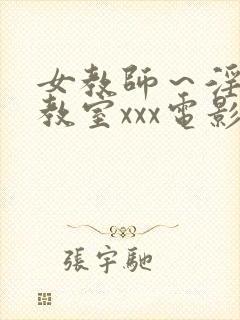 女教師～淫
教室xxx電影
張宇馳